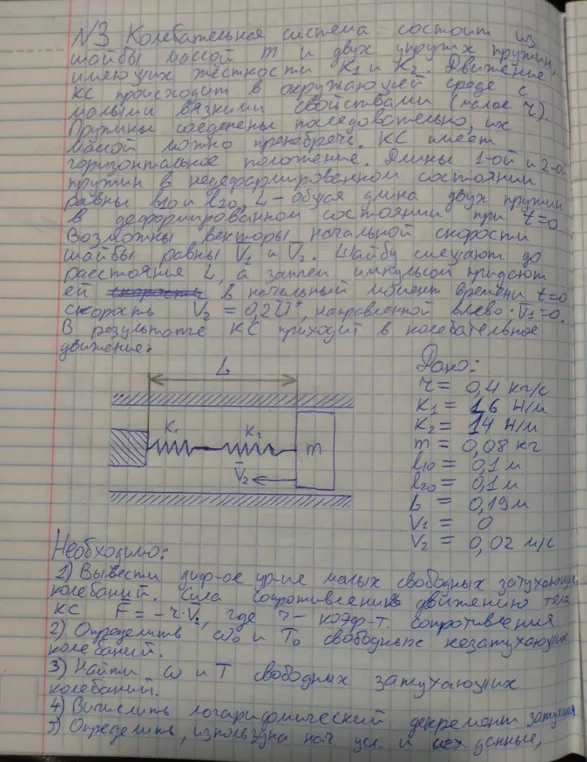 N3 Колебательная система состоит из
шайбы массой m и двух упругих пружин,
имеющих жёсткости K1 и K2. Движение
КС происходит в окружающей среде с
малыми вязкими свойствами (малое r).
Пружины соеденены последовательно, их
массой можно пренебречь. КС имеет
горизонтальное положение. Длины 1-ой и 2-ой
пружин в недеформированном состоянии
равны l10 и l20, L - общая длина двух пружин
в деформированном состоянии при t=0
Возможны векторы начальной скорости
шайбы равны V1 и V2. Шайбу смещают до
расстояния L, а затем импульсом придают
ей в начальный момент времени t=0
скорость V2 = 0,2, направленной влево. V1=0.
В результате КС приходит в колебательное
движение.
Дано:
r = 0,4 кг/с
K1 = 16 Н/м
K2 = 14 Н/м
m = 0,08 кг
l10 = 0,1 м
l20 = 0,1 м
L = 0,19 м
V1 = 0
V2 = 0,02 м/с
L
K1
K2
m
V2
Необходимо:
1) Вывести диф-ое ур-ие малых свободных затухающих
колебаний. Сила сопротивления движению тела
КС F = -r·V, где r - коэф-т. сопротивления
2) Определить ω0 и T0 свободных незатухающих
колебаний.
3) Найти ω и T свободных затухающих
колебаний.
4) Вычислить логарифмический декремент затухания
5) Определить, используя нач. ус. и данные,